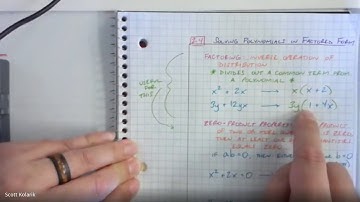 2.4 SOLVING POLYNOMIALS IN FACTORED FORM
FACTORING: INVERSE OPERATION OF
DISTRIBUTION
* DIVIDES OUT A COMMON TERM FROM
A POLYNOMIAL *
USEFUL
FOR
THIS
x² + 2x → x(x + 2)
3y + 12yx → 3y(1 + 4x)
ZERO-PRODUCT PROPERTY: PRODUCT
OF TWO
ZERO,
THEN AT LEAST ONE
EQUAL ZERO
IF ab = 0, THEN
x² + 2x = 0 →
Scott Kolarik